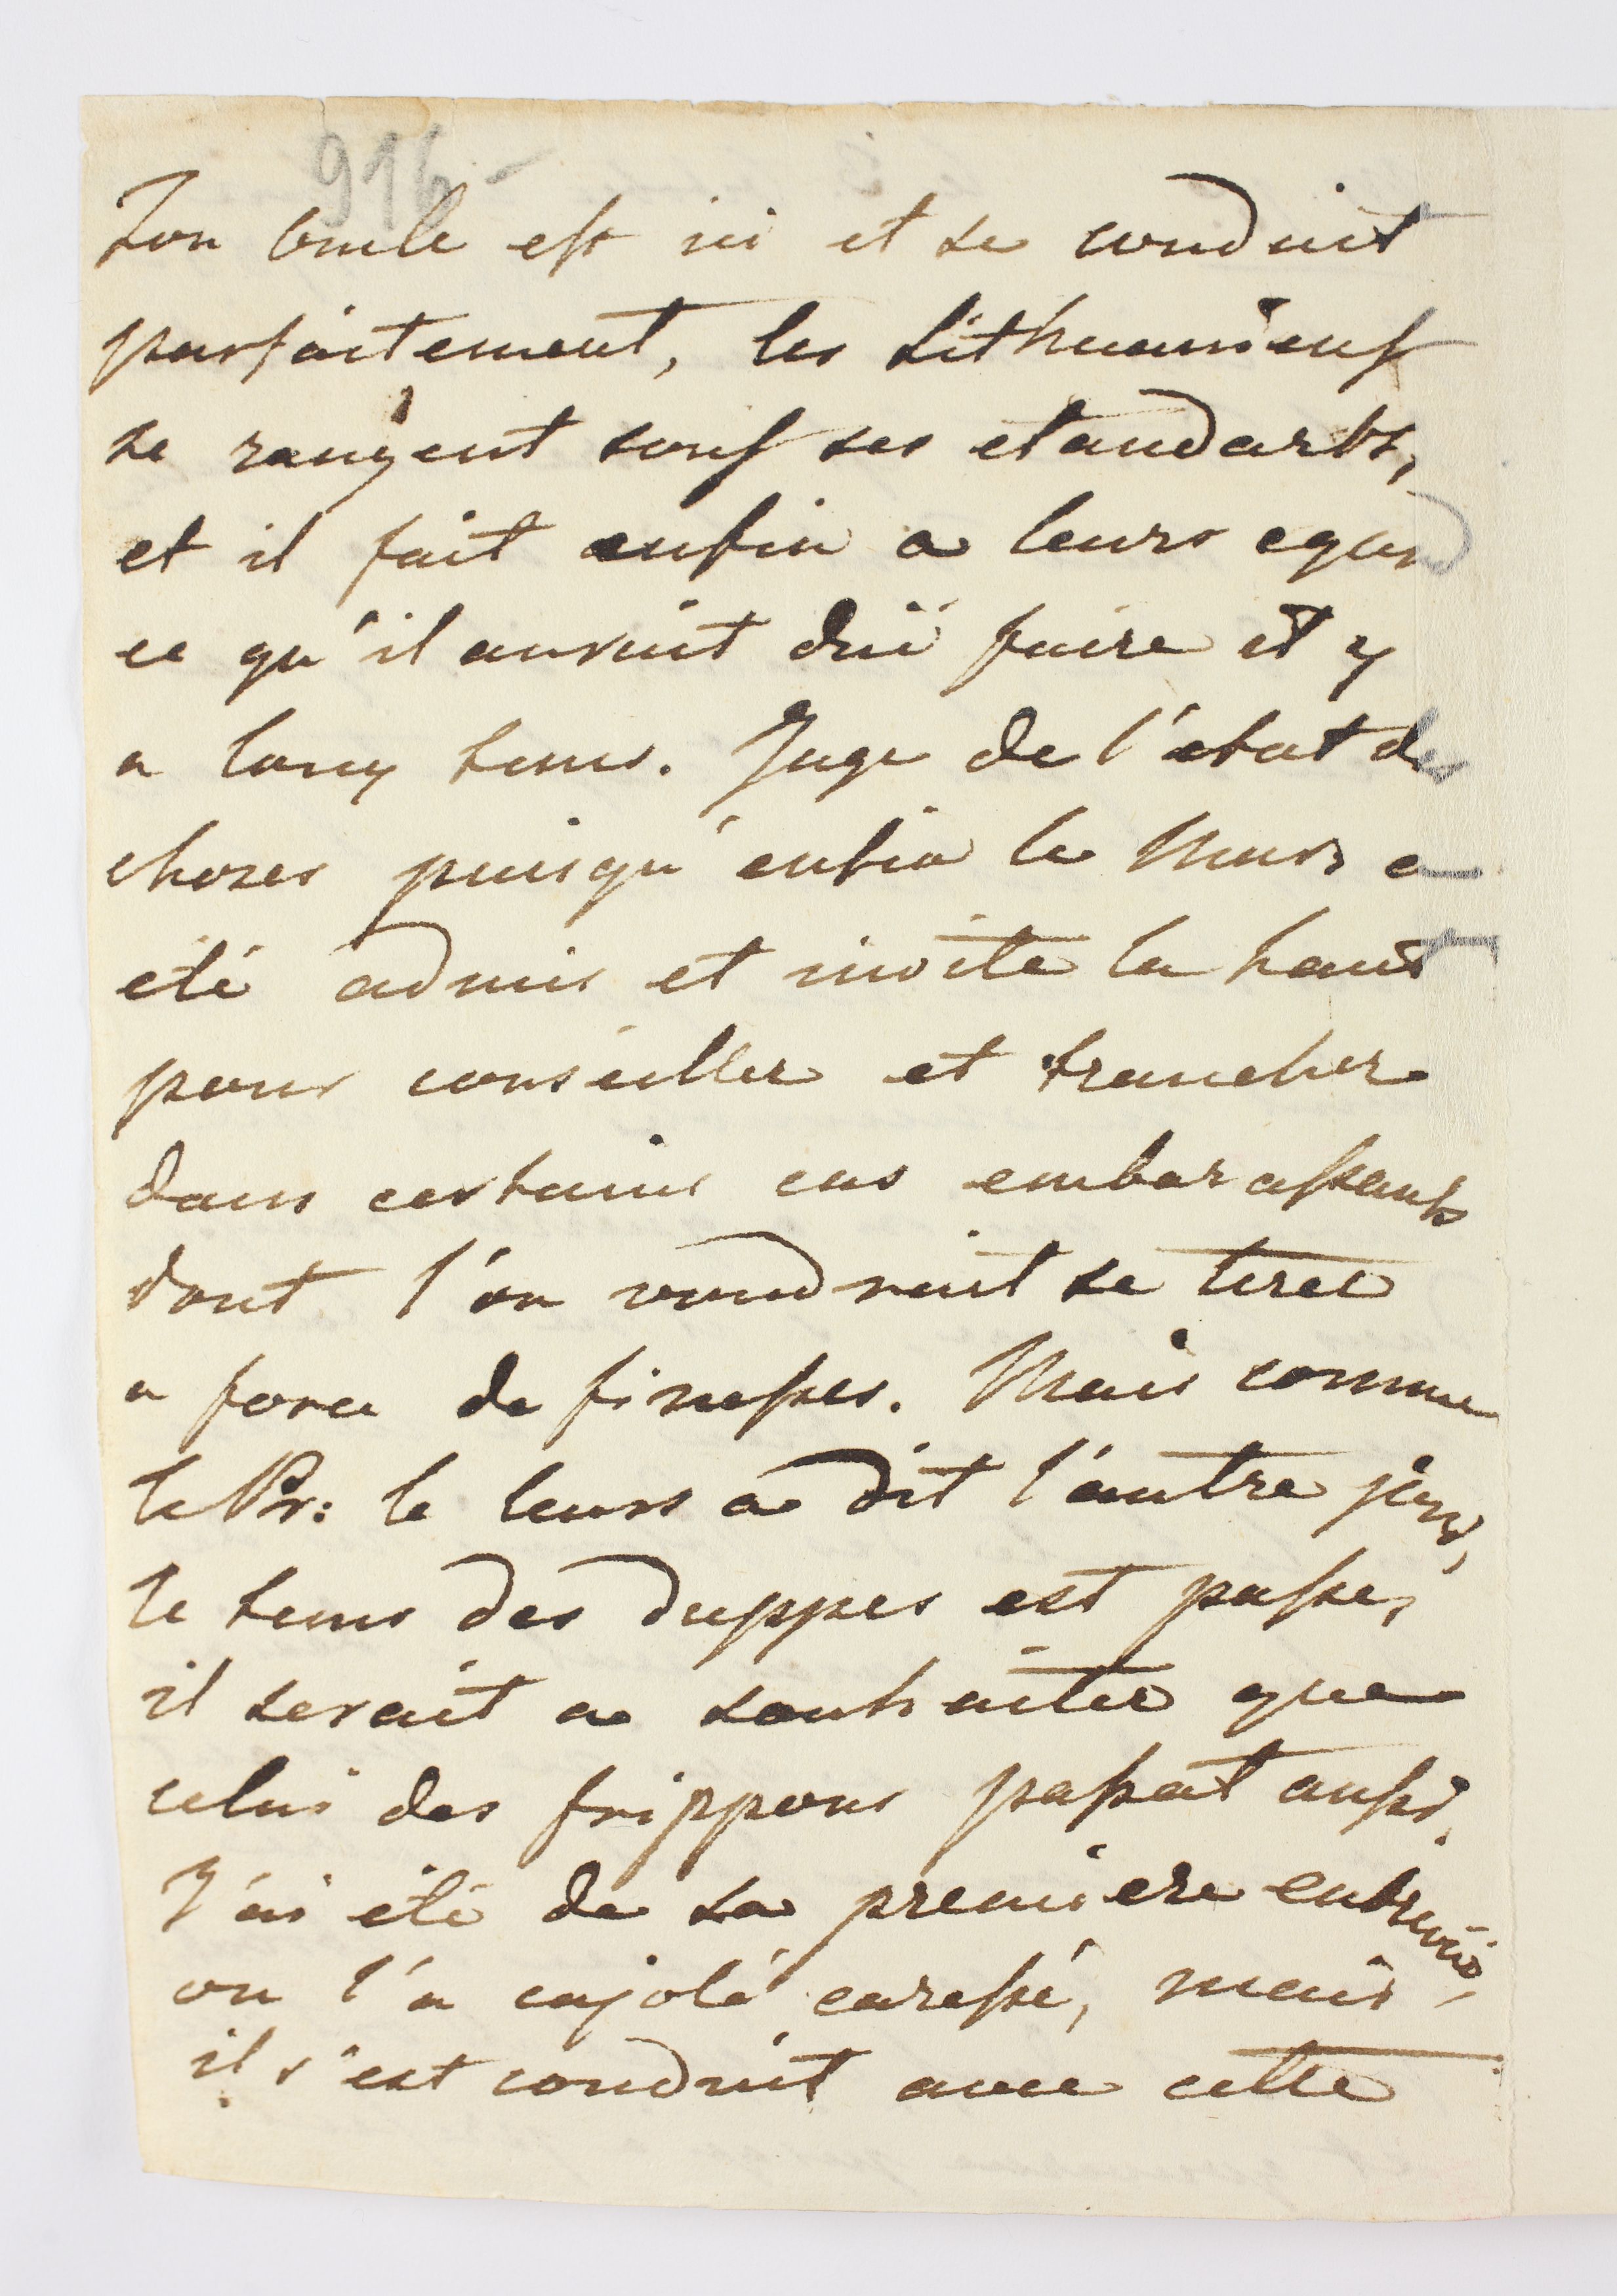 916-
Ton oncle est ici et se conduit
parfaitement, les Lithuaniens
se rangent sous ses etandarts,
et il fait enfin a leurs egard
ce qu'il auroit dû faire il y
a long tems. Juge de l'etat des
choses puisqu'enfin le Mars a
été admis et invite la haut
pour conseiller et trancher
dans certains cas embarassants
dont l'on voudroit se tirer
a force de finesses. Mais comme
le Pr: le leurs a dit l'autre jour,
le tems des duppes est passe,
il serait a souhaiter que
celui des frippons passat aussi.
J'ai été de sa premiere entrevue,
on l'a cajolé caressé, mais
il s'est conduit avec cette